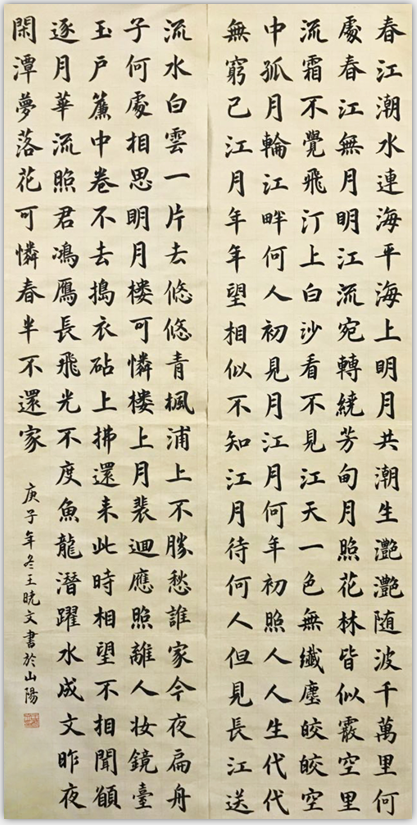 春江潮水連海平海上明月共潮生灔灔随波千萬里何
處春江無月明江流宛轉繞芳甸月照花林皆似霰空里
流霜不覺飛汀上白沙看不見江天一色無纖塵皎皎空
中孤月輪江畔何人初見月江月何年初照人人生代代
無窮已江月年年望相似不知江月待何人但見長江送
流水白雲一片去悠悠青楓浦上不勝愁誰家今夜扁舟
子何處相思明月楼可憐楼上月裴迴應照離人妝鏡臺
玉户簾中卷不去搗衣砧上拂還来此時相望不相聞願
逐月華流照君鴻鴈長飛光不度魚龍潛躍水成文昨夜
閑潭夢落花可憐春半不還家
庚子年冬王晓文書於山陽